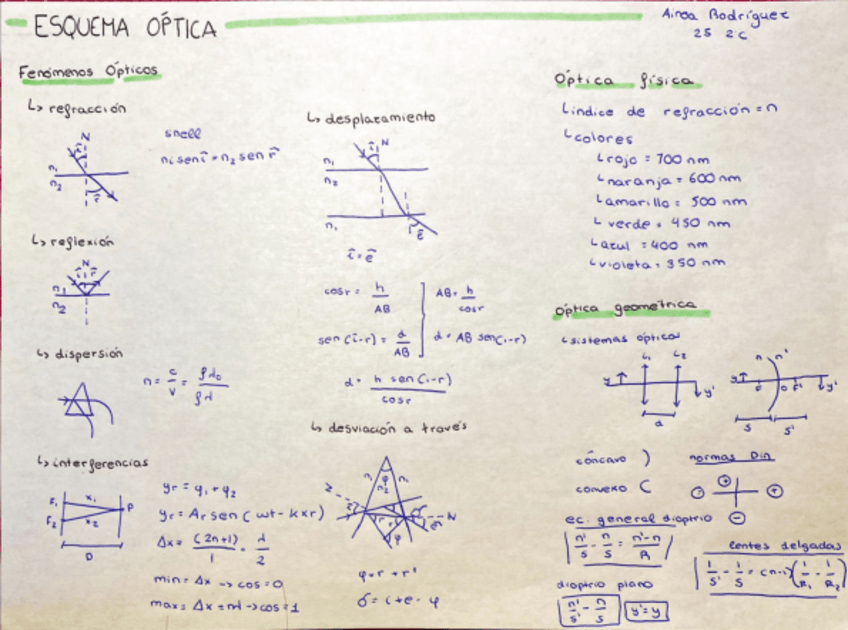 ESQUEMA ÓPTICA
Ainoa Rodríguez
2S 2C
Fenómenos Ópticos
↳ refracción
N
î
n₁
n₂
r̂
snell
n₁ sen î = n₂ sen r̂
↳ reflexión
N
î r̂
n₁
n₂
↳ dispersión
n = c/v = fλ₀/fλ
↳ interferencias
F₁ x₁ P
F₂ x₂
D
yr = y₁ + y₂
yr = Ar sen (ωt - kxr)
Δx = (2n+1)/1 · λ/2
min = Δx → cos = 0
max = Δx = nλ → cos = 1
↳ desplazamiento
î N
n₁
n₂
n₁
ê
î = ê
cos r = h/AB
AB = h/cos r
sen (i-r) = d/AB
d = AB sen(i-r)
d = h sen (i-r)/cos r
↳ desviación a través
φ = r + r'
δ = i + e - φ
Óptica física
↳ índice de refracción = n
↳ colores
↳ rojo = 700 nm
↳ naranja = 600 nm
↳ amarillo = 500 nm
↳ verde = 450 nm
↳ azul = 400 nm
↳ violeta = 350 nm
Óptica geométrica
↳ sistemas ópticos
L₁ L₂
y y'
d
n n'
y y'
s s'
cóncavo )
convexo (
normas Din
ec. general dioptrio
n'/s' - n/s = n'-n/R
dioptrio plano
n'/s' - n/s
y' = y
lentes delgadas
1/s' - 1/s = (n-1) (1/R₁ - 1/R₂)